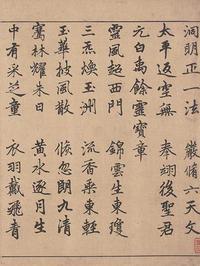 洞明正一法 嚴脩六天文
太平返空無 奉翊後聖君
元白禹餘靈寶章
靈風起西門 錦雲生東瓊
三炁煥玉洲 流香乘東軿
玉華披風散 倏忽朗九清
騫林耀朱日 黃水逐月生
中有采芝童 衣羽戴飛青